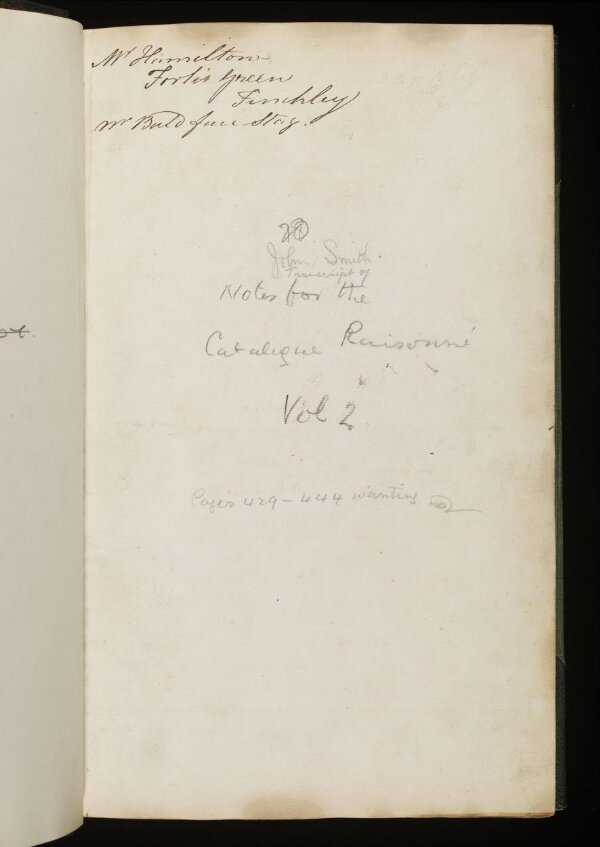 Mr Hamelton
Fortis Green
Finchley
nr Bald face Stag.
John Smith.
Transcript of
Notes for the
Catalogue Raisonné
Vol 2
Pages 429 – 444 wanting